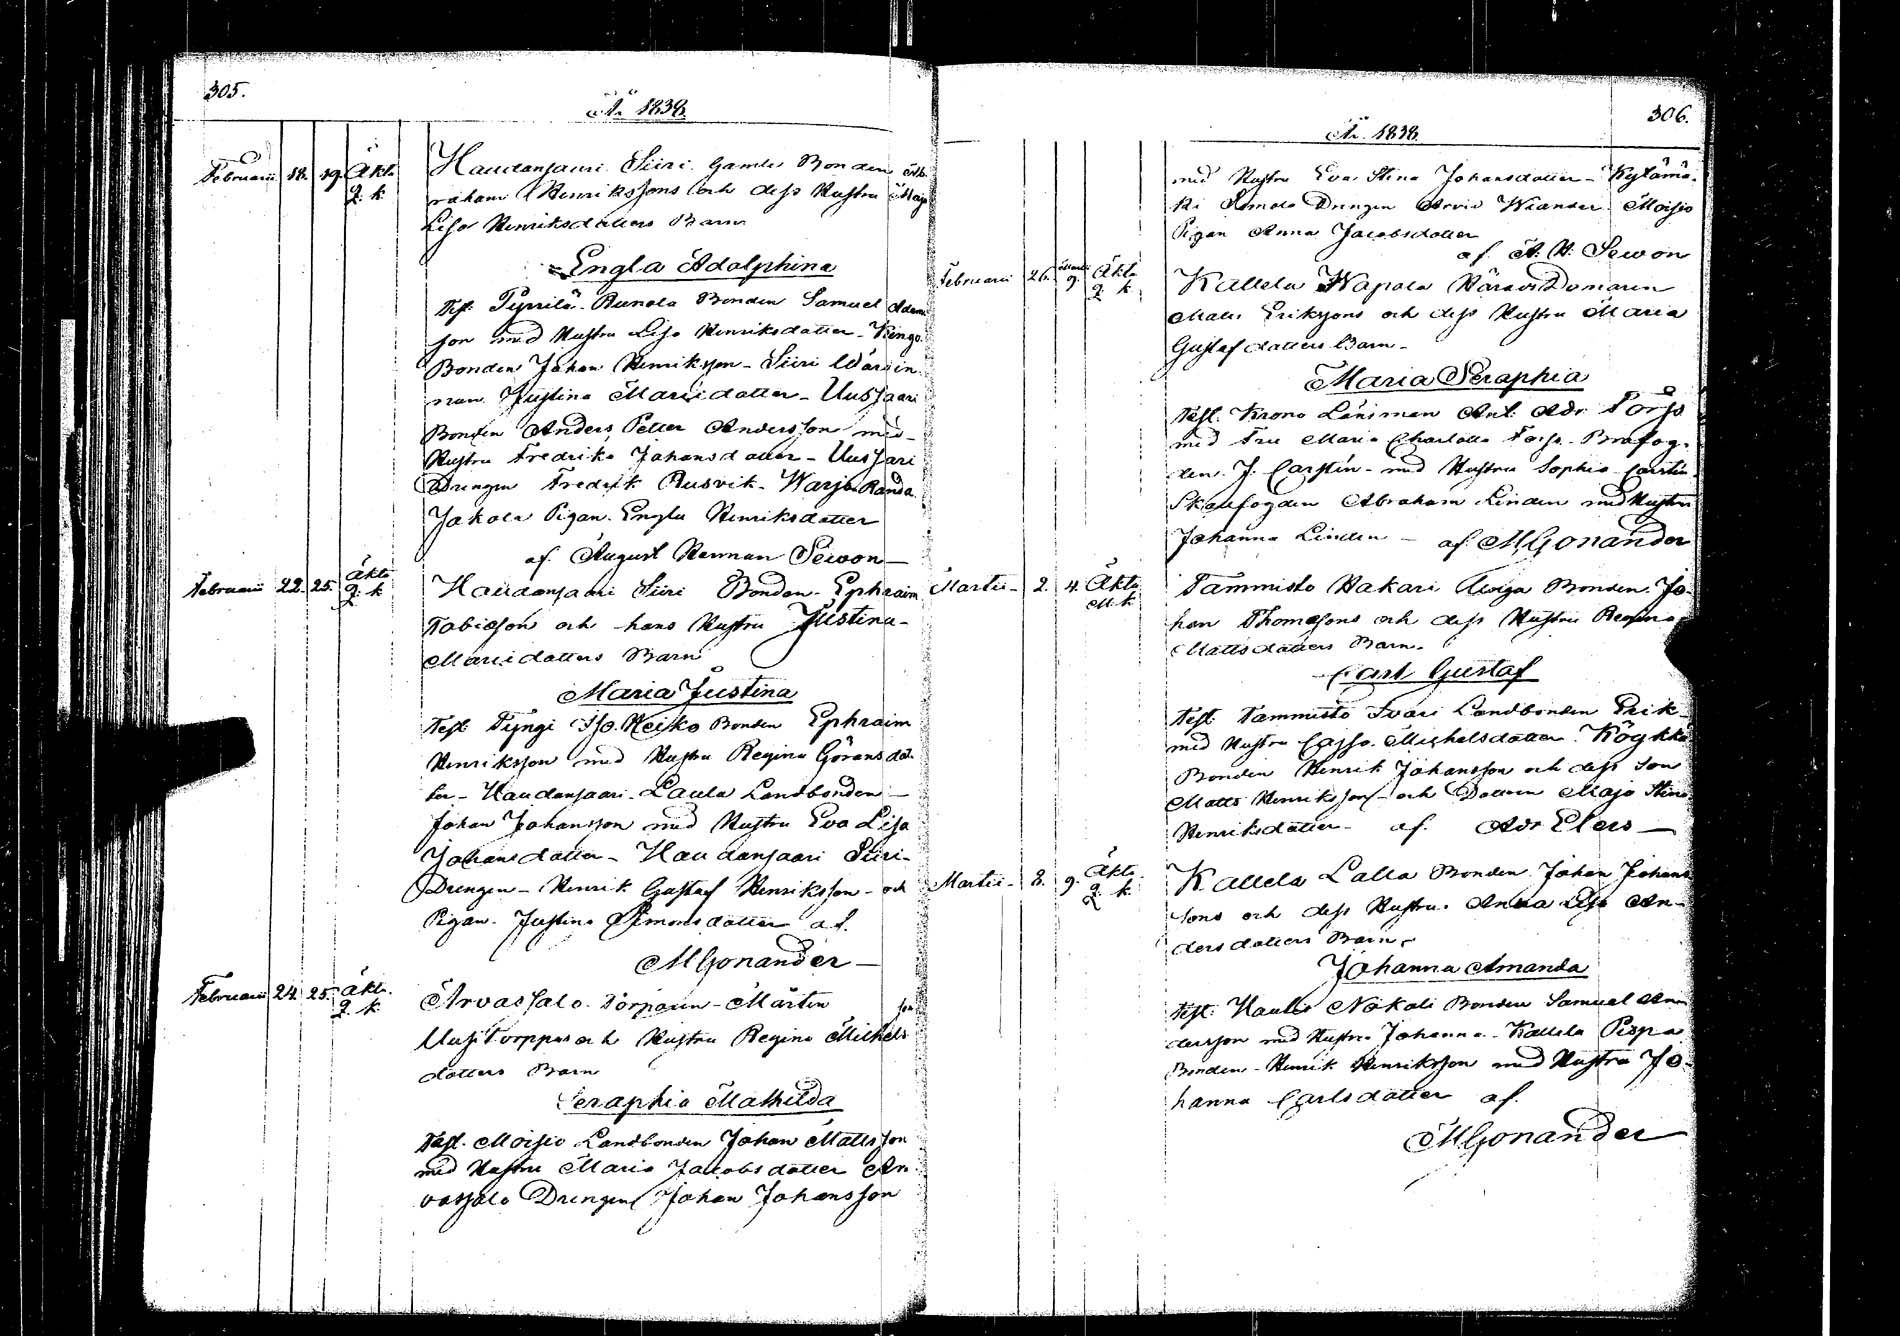 305.
År 1838.
Februarii 18. 19. Äkta Haudanjauri Siiri Gamle Bonden Ab-
Q. k. raham Henrikssons och dess Hustru Maja
Lisa Henriksdotters Barn
Engla Adolphina
Test: Pynnilä Runola Bonden Samuel Adam
son med Hustru Lisa Henriksdotter -
Bonden Johan Henriksson - Siiri Wärdin
nan Justina Mariedotter - Uusjaari
Bonden Anders Petter Andersson med
Hustru Fredrika Johansdotter - Uusjari
Drengen Fredrik Rusvik - Warjo Randa
Jakola Pigan Engla Henriksdotter
af August Herman Sewon -
Februarii 22. 25. Äkta Q. k Haudanjauri Siiri Bonden Ephraim
Tobiasson och hans Hustru Justina
Mariedotters Barn
Maria Justina
Test: Tyngi Iso Heiko Bonden Ephraim
Henriksson med Hustru Regina Göransdot-
ter - Haudanjaari Laula Landbonden -
Johan Johansson med Hustru Eva Lisa
Johansdotter - Haudanjaari Siiri -
Drengen - Henrik Gustaf Henriksson - och
Pigan Justina Simonsdotter af.
M Gonander -
Februarii 24. 25. Äkta. Arvassalo Torparen - Mårten son
Q. k. Uusitorppas och Hustru Regina Michels
dotters Barn
Seraphia Mathilda
Test. Moisio Landbonden Johan Mattsson
med Hustru Maria Jacobsdotter Ar-
vassalo Drengen Johan Johansson
306.
År 1838.
med Hustru Eva Stina Johansdotter - Kylämä-
ki Simola Drengen Arvid Wiander Moisio
Pigan Anna Jacobsdotter
af A. H. Sewon
Februarii 26. Martii 9. Äkta Q. k. Kallela Wapola Häradsdomaren
Matts Erikssons och dess Hustru Maria
Gustafdotters Barn -
Maria Seraphia
Test. Krono Länsman Ant. Adr. Torss
med Fru Maria Charlotta Forss - Brofog-
den J. Carstin - med Hustru Sophia Carstin
Skallfogden Abraham Linden med Hustru
Johanna Linden - af. M Gonander
Martii - 2. 4. Äkta M. k. Tammisto Hakari Äwiga Bonden. Jo-
han Thomassons och dess Hustru Regina
Mattsdotters Barn.
Carl Gustaf
Test. Tammisto Ivari Landbonden Erik -
med Hustru Cajsa Michelsdotter. Köykkä
Bonden Henrik Johansson och dess Son
Matts Henriksson - och Dottern Maja Stina
Henriksdotter - af. Adr Elers -
Martii - 8. 9. Äkta. Q. k. Kallela Lalla Bonden Johan Johans
sons och dess Hustru Anna Lisa An-
dersdotters Barn -
Johanna Amanda
Test. Haulio Nokali Bonden Samuel An-
dersson med Hustru Johanna - Kallela Pispa
Bonden - Henrik Henriksson med Hustru Jo-
hanna Carlsdotter af.
M Gonander